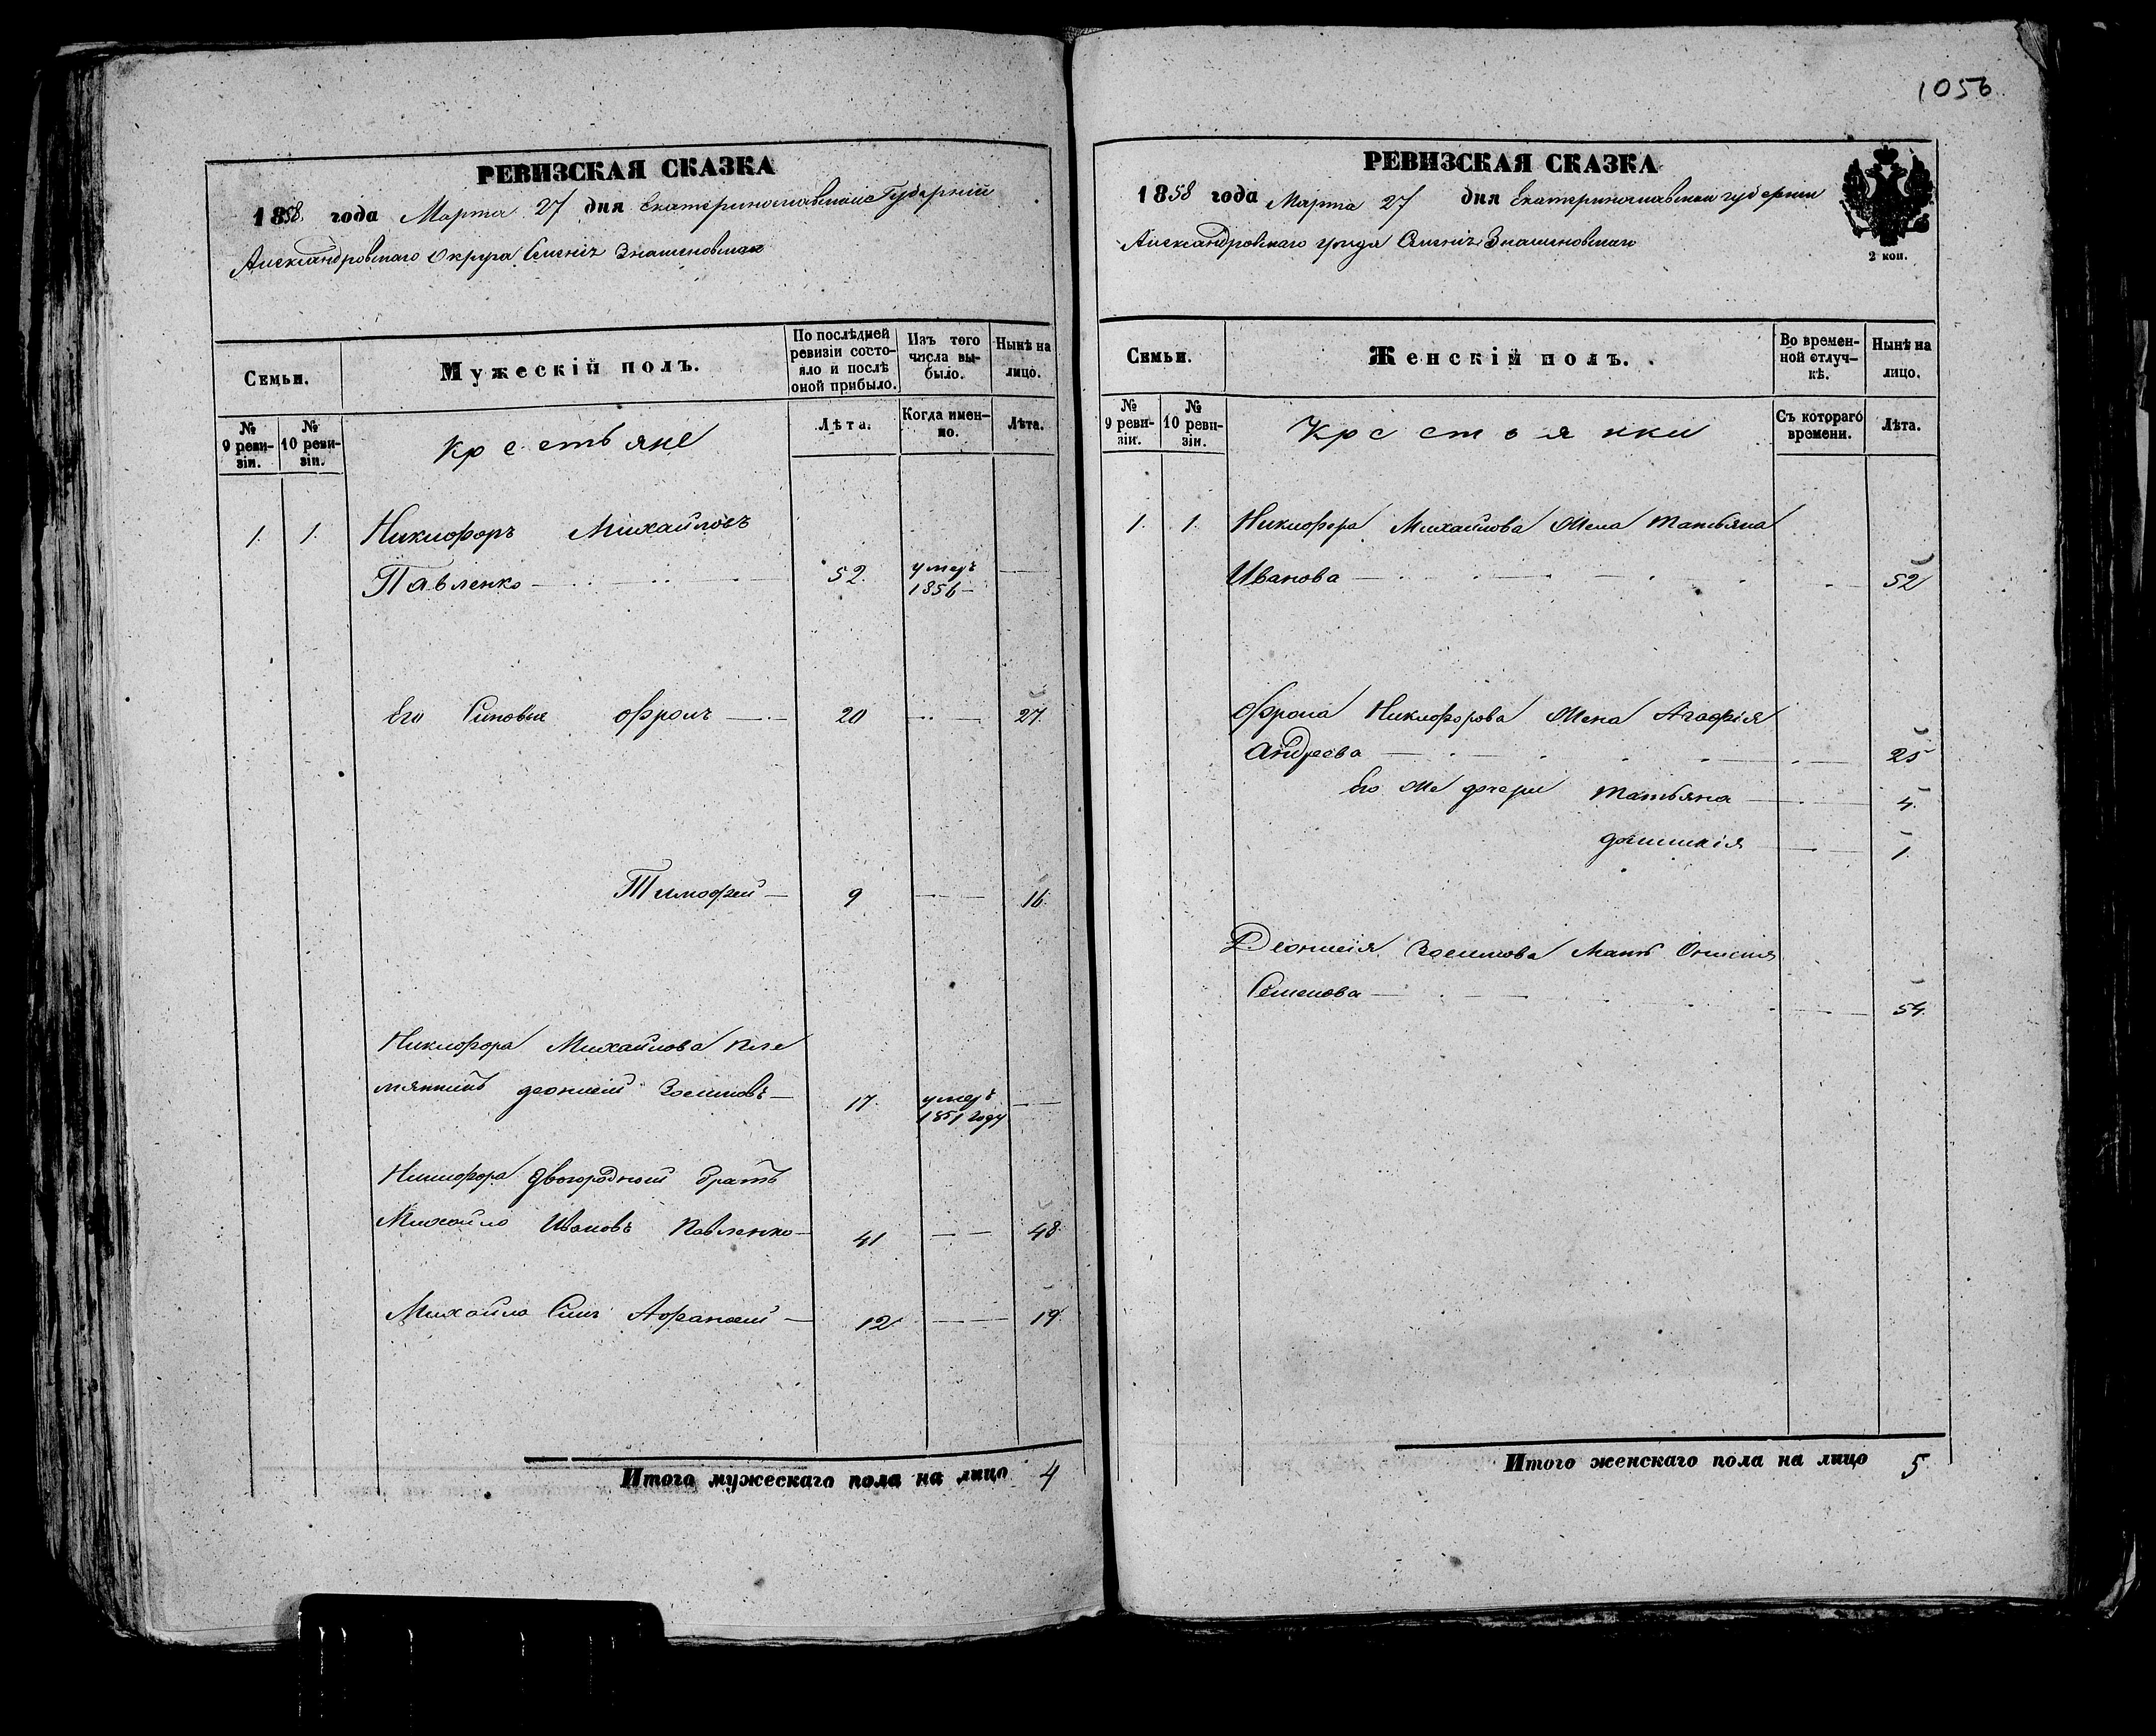 1056
РЕВИЗСКАЯ СКАЗКА
1858 года Марта 27 дня Екатеринославской Губерніи
Александровскаго Округа Знаменовской
Семьи.
Мужескій полъ.
По послѣдней ревизіи состояло и послѣ оной прибыло.
Изъ того числа выбыло.
Нынѣ на лицо.
№ 9 ревизіи.
№ 10 ревизіи.
Крестьяне
Лѣта.
Когда именно.
Лѣта.
1. 1. Никифоръ Михайловъ
Павленко 52. умеръ 1856
Его Синовья Офромъ 20 27.
Тимофей 9 16.
Никифора Михайлова пле
мянникъ Деонисій Зосимовъ 17. умеръ 1851 году
Никифора двоюродной братъ
Михайло Ивановъ Павленко 41 48.
Михайло Синъ Афанасій 12 19.
Итого мужескаго пола на лицо 4
РЕВИЗСКАЯ СКАЗКА
1858 года Марта 27 дня Екатеринославской губерніи
Александровскаго уезда Знаменовскаго
2 коп.
Семьи.
Женскій полъ.
Во временной отлучкѣ.
Нынѣ на лицо.
№ 9 ревизіи.
№ 10 ревизіи.
Крестьянки
Съ котораго времени.
Лѣта.
1. 1. Никифора Михайлова Жена Татьяна
Иванова 52
Офрома Никифорова Жена Агафія
Андреева 25
Его же дочери Татьяна 4.
1.
Деонисія Зосимова Мать
Семенова 54.
Итого женскаго пола на лицо 5